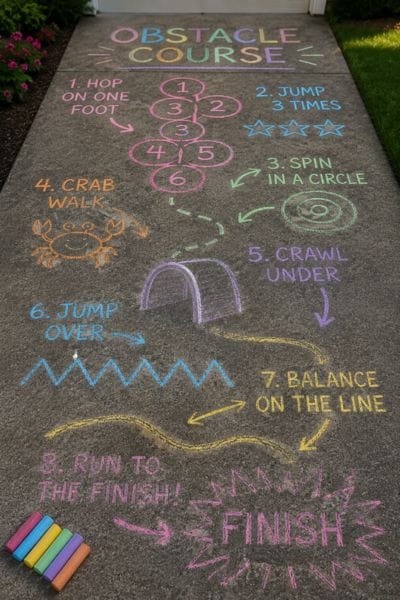 OBSTACLE
COURSE
1. HOP
ON ONE
FOOT
1
3 2
3
4 5
6
2. JUMP
3 TIMES
3. SPIN
IN A CIRCLE
4. CRAB
WALK
5. CRAWL
UNDER
6. JUMP
OVER
7. BALANCE
ON THE LINE
8. RUN TO
THE FINISH!
FINISH